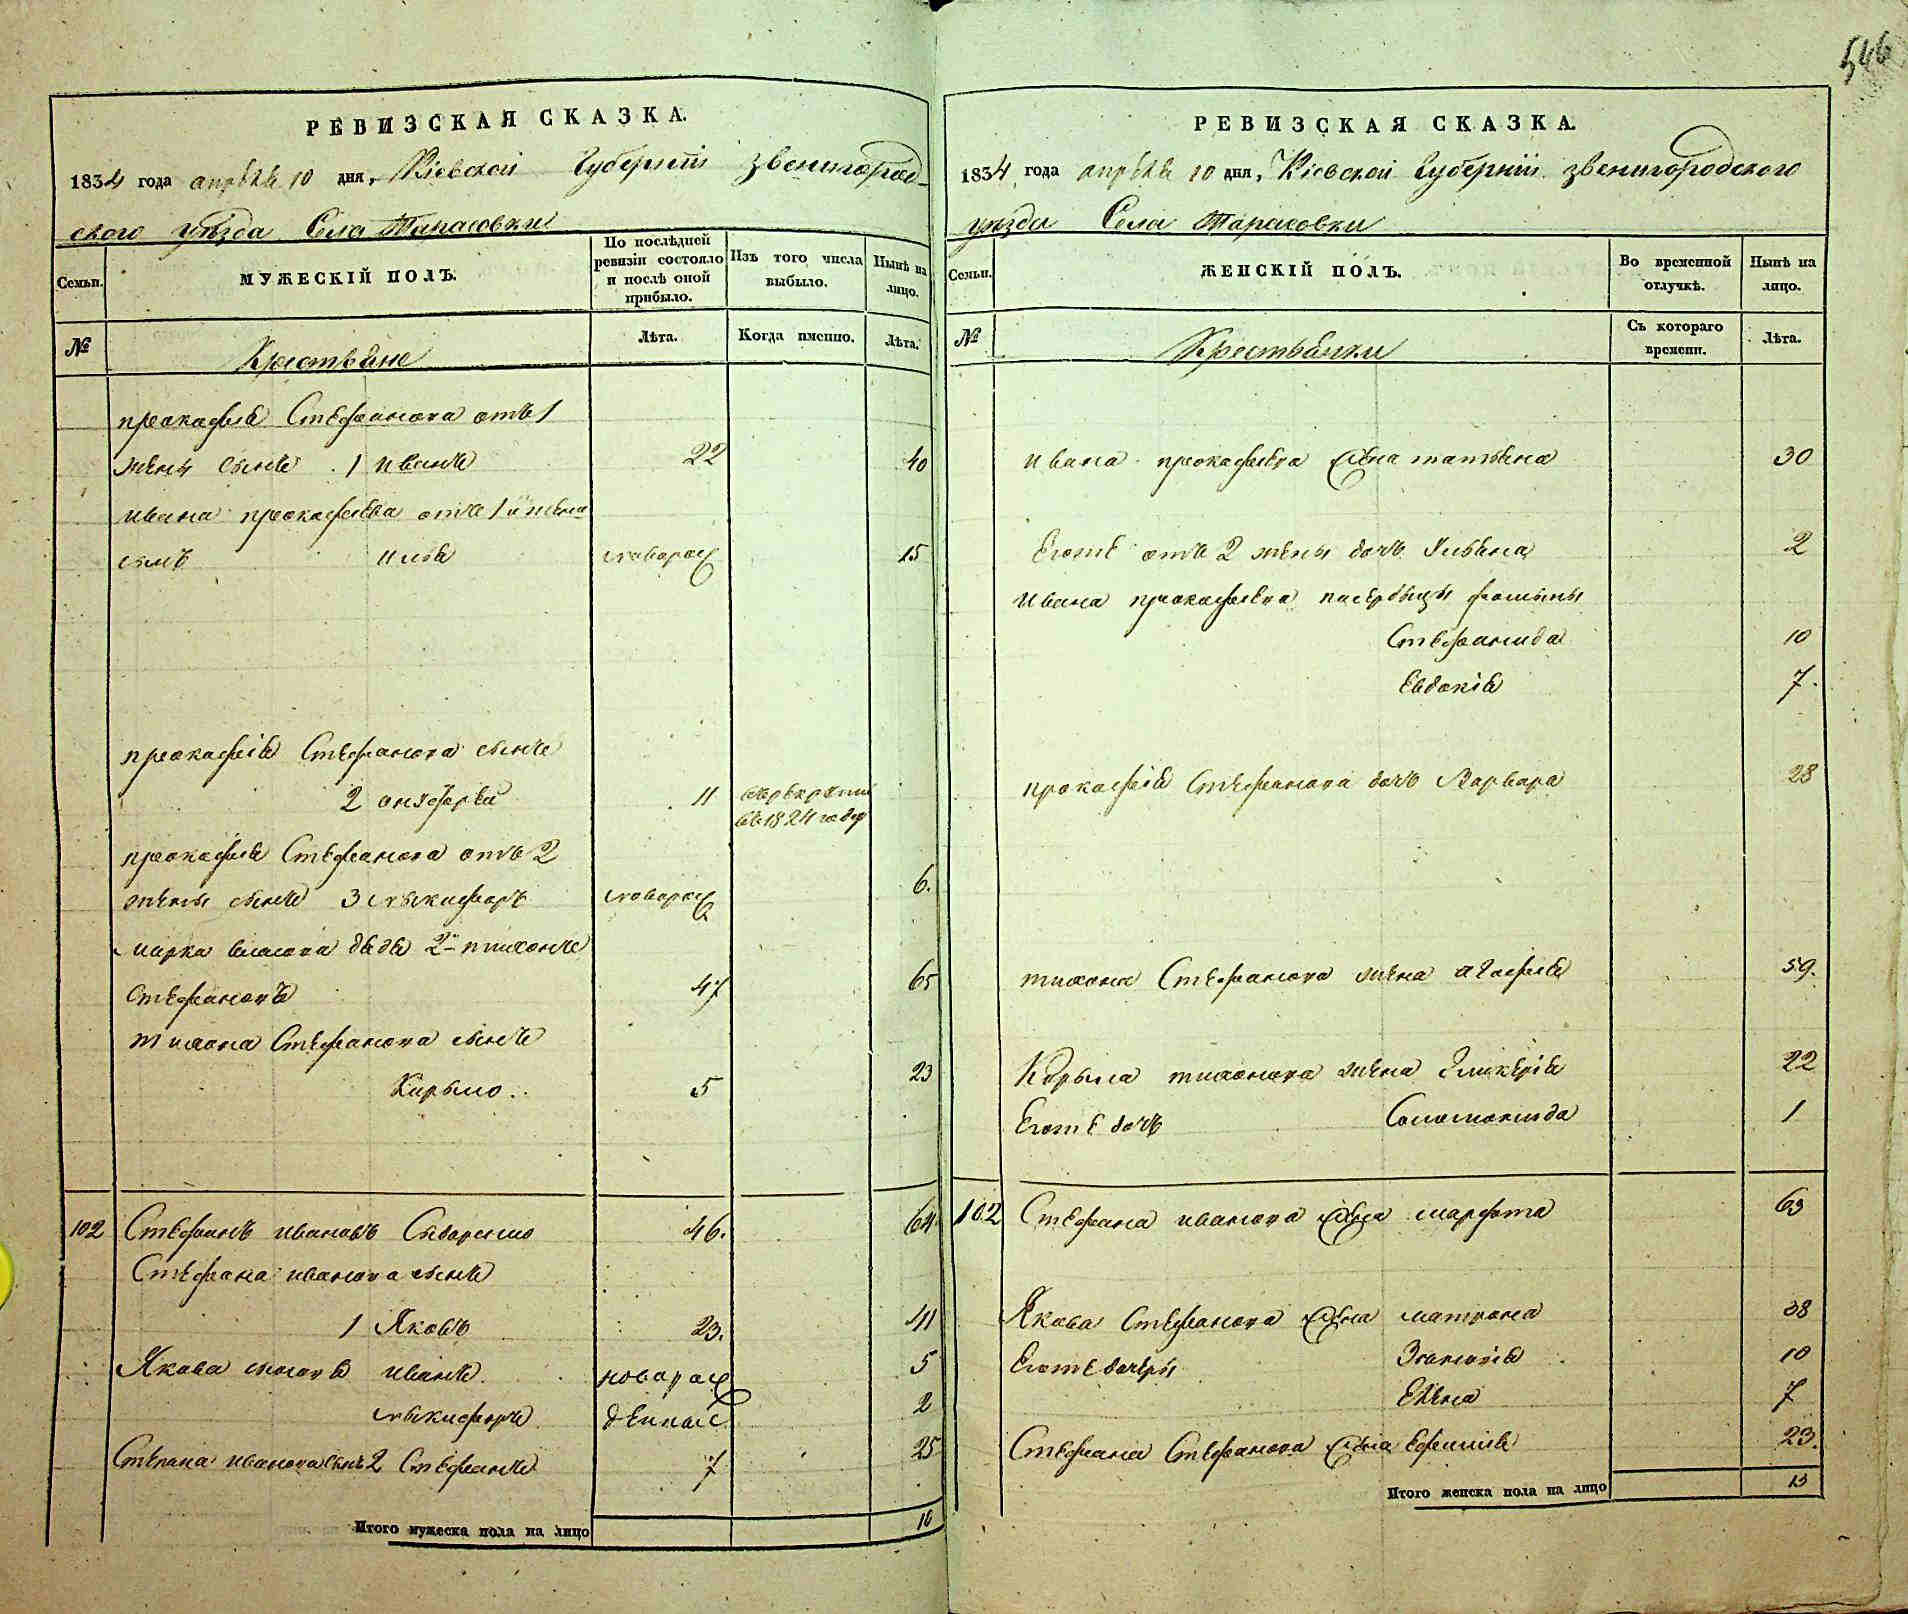 546
РЕВИЗСКАЯ СКАЗКА.
1834 года апрѣля 10 дня, Кіевской Губерніи Звенигород-
ского уѣзда Села Тарасовки
Семьи.
МУЖЕСКІЙ ПОЛЪ.
По послѣдней ревизіи состояло и послѣ оной прибыло.
Изъ того числа выбыло.
Нынѣ на лицо.
№
Крестьяне
Лѣта.
Когда именно.
Лѣта.
прокофія Стефанова отъ 1
жены сынъ 1 иванъ 22 40
ивана прокофіева отъ 1й жены
сынъ илія новорож 15
прокофія Стефанова сынъ
2 онофрей 11
въ 1824 году
прокофія Стефанова отъ 2
жены сынъ 3 никифоръ новорож 6.
марка власова дядя 2й тихонъ
Стефановъ 47 65
тихона Стефанова сынъ
Кирыло 5 23
102 Стефанъ ивановъ 46. 64
Стефана иванова сынъ
1 Яковъ 23. 41
Якова иванъ новорож 5
никифоръ 2
Стефана иванова сынъ 2 Стефанъ 7 25
Итого мужеска пола на лицо 10
РЕВИЗСКАЯ СКАЗКА.
1834 года апрѣля 10 дня, Кіевской Губерніи Звенигородского
уѣзда Села Тарасовки
Семьи.
ЖЕНСКІЙ ПОЛЪ.
Во временной отлучкѣ.
Нынѣ на лицо.
№
Крестьянки
Съ котораго времени.
Лѣта.
ивана прокофіева жена татьяна 30
Егоже отъ 2 жены дочь Ульяна 2
Ивана прокофіева падчерицы
Стефанида 10
Евдокія 7.
прокофія Стефанова дочь Варвара 28
тихона Стефанова жена агафія 59.
Кирыла тихонова жена Гликерія 22
Егоже дочь Соломонида 1
102 Стефана иванова жена марфа 63
Якова Стефанова жена матрона 38
Егоже дочери 10
Елена 7
Стефана Стефанова жена Ефимія 23.
Итого женска пола на лицо 13